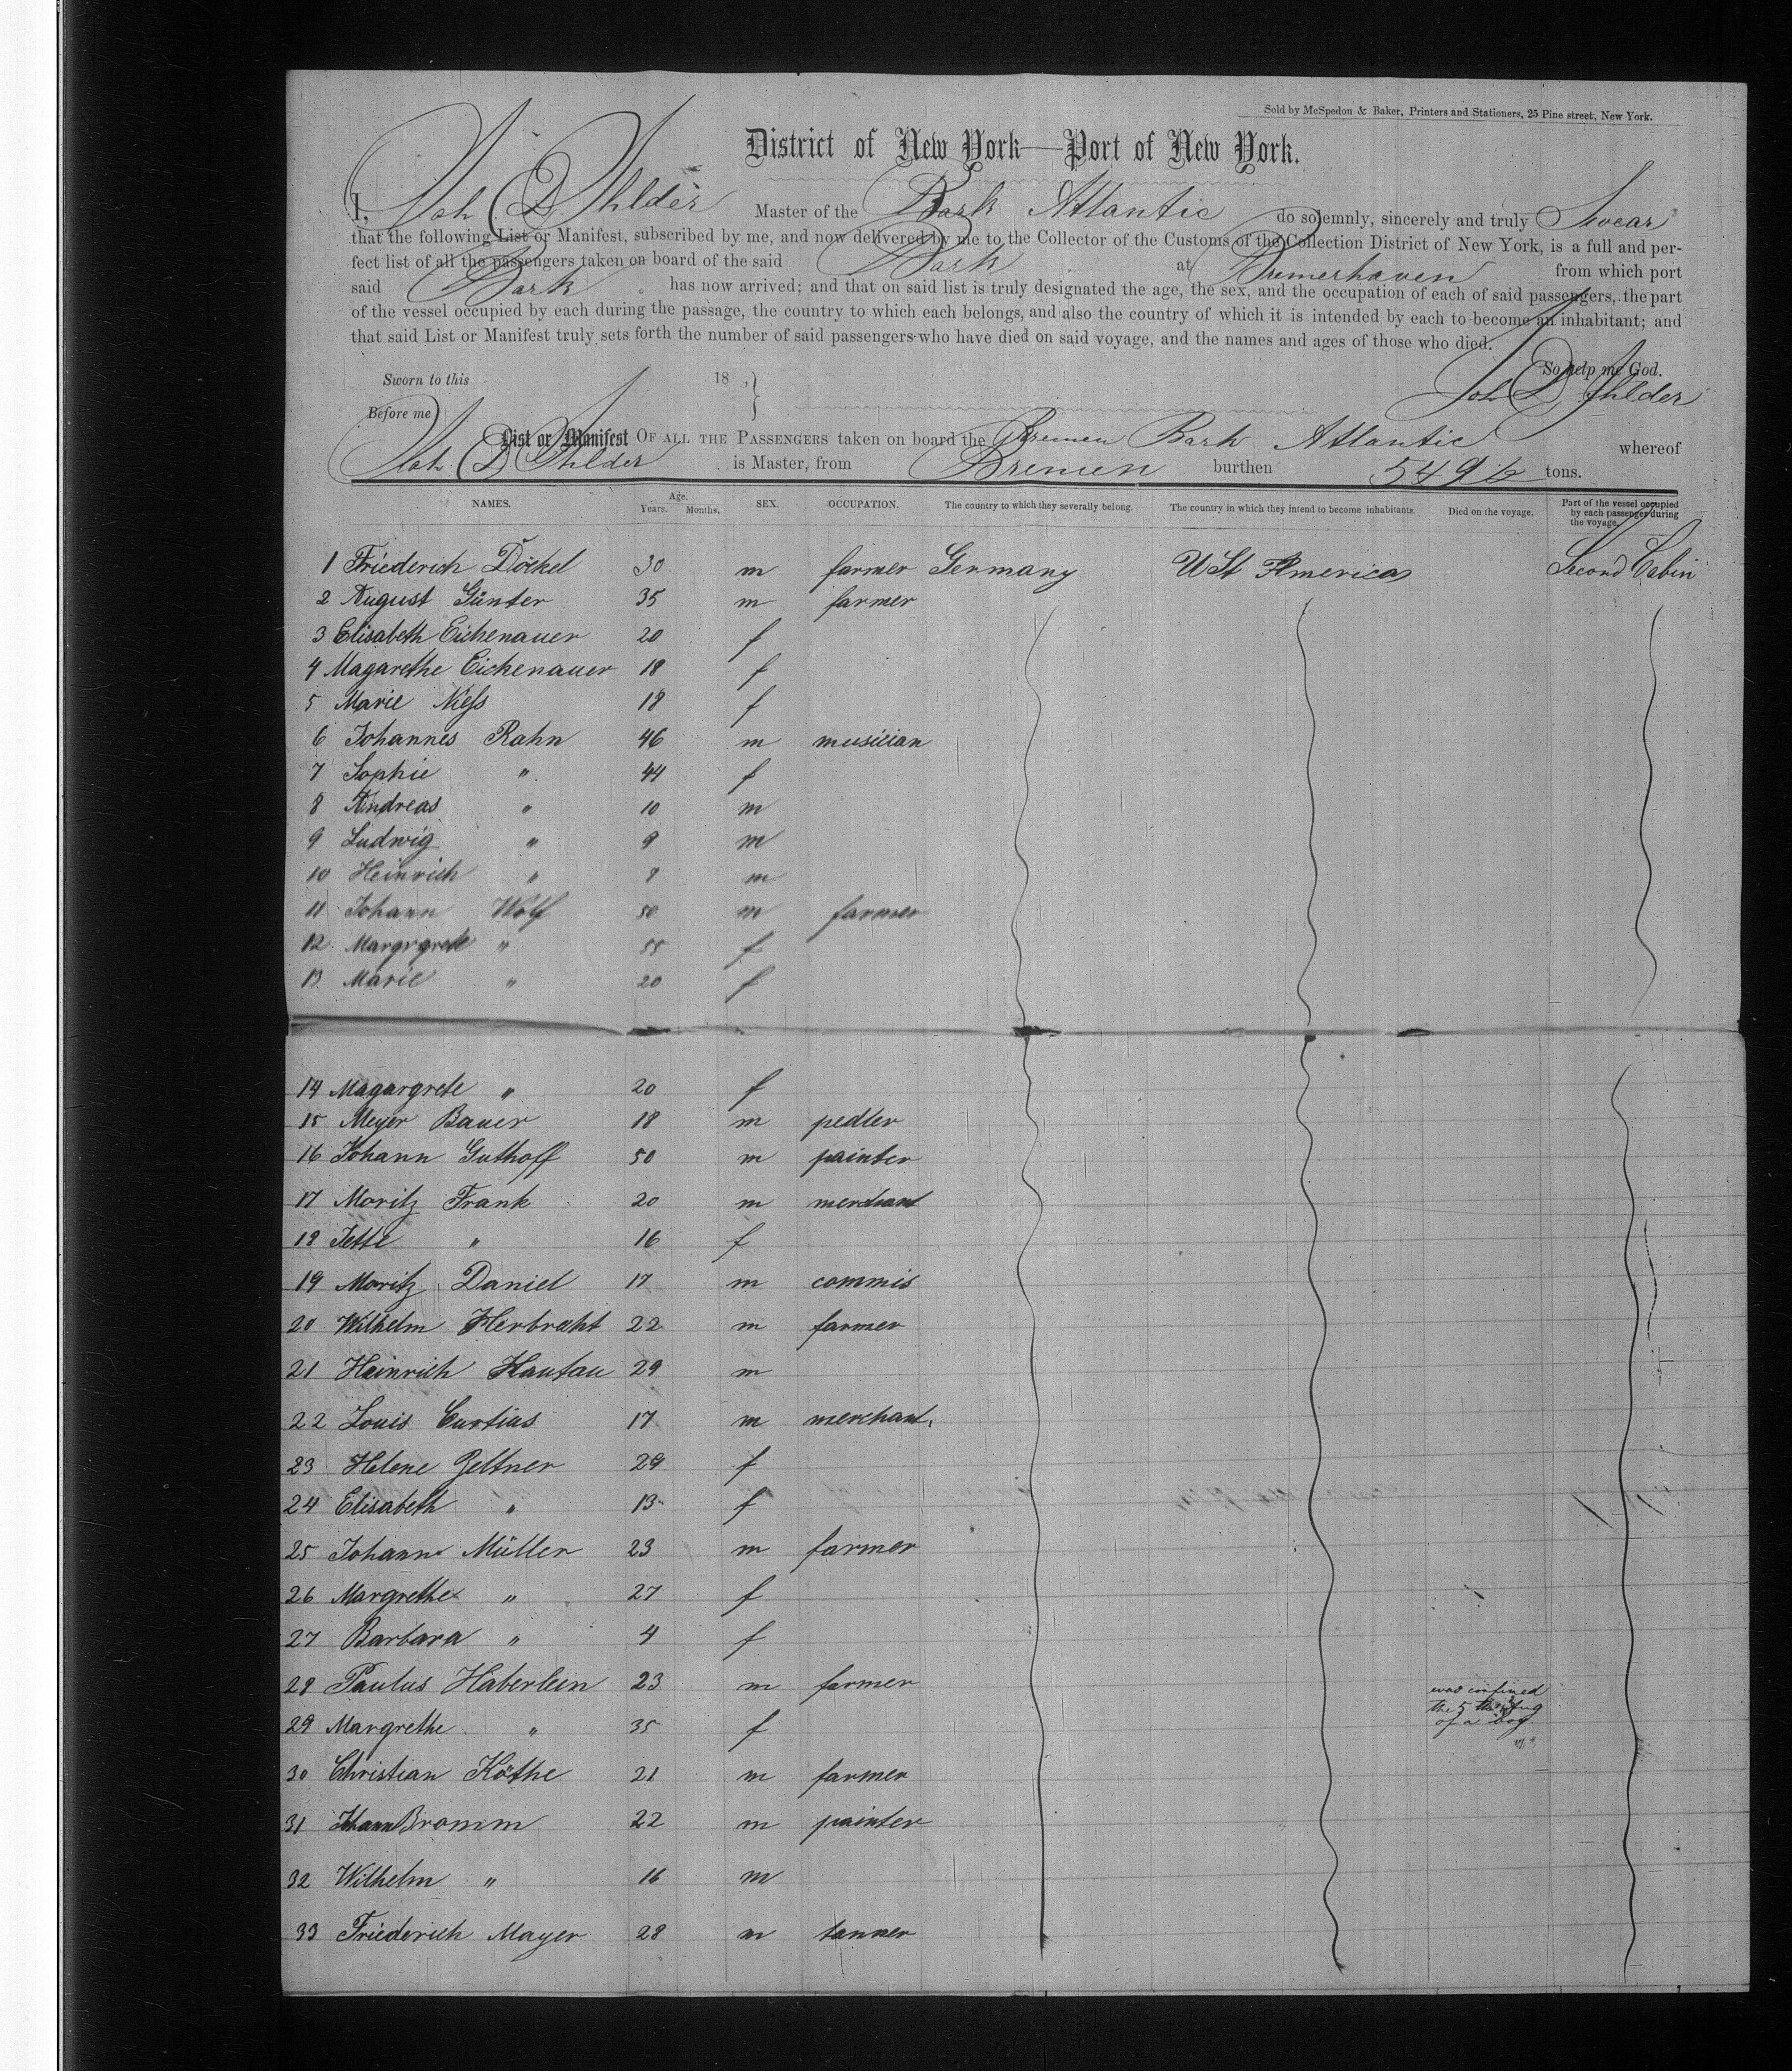 Sold by McSpedon & Baker, Printers and Stationers, 25 Pine street, New York.
District of New York—Port of New York.
I, Joh D Ahlder Master of the Bark Atlantic do solemnly, sincerely and truly Swear
that the following List or Manifest, subscribed by me, and now delivered by me to the Collector of the Customs of the Collection District of New York, is a full and per-
fect list of all the passengers taken on board of the said Bark at Bremerhaven from which port
said Bark has now arrived; and that on said list is truly designated the age, the sex, and the occupation of each of said passengers, the part
of the vessel occupied by each during the passage, the country to which each belongs, and also the country of which it is intended by each to become an inhabitant; and
that said List or Manifest truly sets forth the number of said passengers who have died on said voyage, and the names and ages of those who died.
So help me God.
Sworn to this 18 ,
Joh D Ahlder
Before me
List or Manifest OF ALL THE PASSENGERS taken on board the Bremen Bark Atlantic whereof
Joh. D Ahlder is Master, from Bremen burthen 549 1/2 tons.
NAMES. Age. Years. Months. SEX. OCCUPATION. The country to which they severally belong. The country in which they intend to become inhabitants. Died on the voyage. Part of the vessel occupied by each passenger during the voyage.
1 Friederich Döckel 30 m farmer Germany U St America Second Cabin
2 August Günter 35 m farmer
3 Elisabeth Eichenauer 20 f
4 Magarethe Eichenauer 18 f
5 Marie Niess 18 f
6 Johannes Rahn 46 m musician
7 Sophie " 44 f
8 Andreas " 10 m
9 Ludwig " 9 m
10 Heinrich " 8 m
11 Johann Wolf 50 m farmer
12 Margrgrete " 55 f
13 Marie " 20 f
14 Magargrete " 20 f
15 Meyer Bauer 18 m pedler
16 Johann Guthoff 50 m painter
17 Moritz Frank 20 m merchant
18 Jette " 16 f
19 Moritz Daniel 17 m commis
20 Wilhelm Herbrecht 22 m farmer
21 Heinrich Hautau 29 m
22 Louis Curtius 17 m merchant.
23 Helene Zeltner 29 f
24 Elisabeth " 13 f
25 Johann Müller 23 m farmer
26 Margrethe " 27 f
27 Barbara " 4 f
28 Paulus Haberlein 23 m farmer
was confined
29 Margrethe " 35 f the 5th Aug
of a boy
30 Christian Köthe 21 m farmer
31 Johann Bromm 22 m painter
32 Wilhelm " 16 m
33 Friederich Mayer 28 m tanner